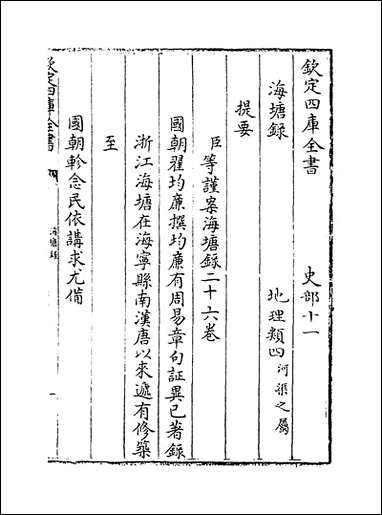 欽定四庫全書　　　　史部十一
海塘録　　　　　　　地理類四河渠之屬
提要
臣等謹案海塘録二十六卷
國朝翟均廉撰均廉有周易章句証異已著録
浙江海塘在海寧縣南漢唐以來遞有修築
至
國朝軫念民依講求尤備
欽定四庫全書
海塘録
一